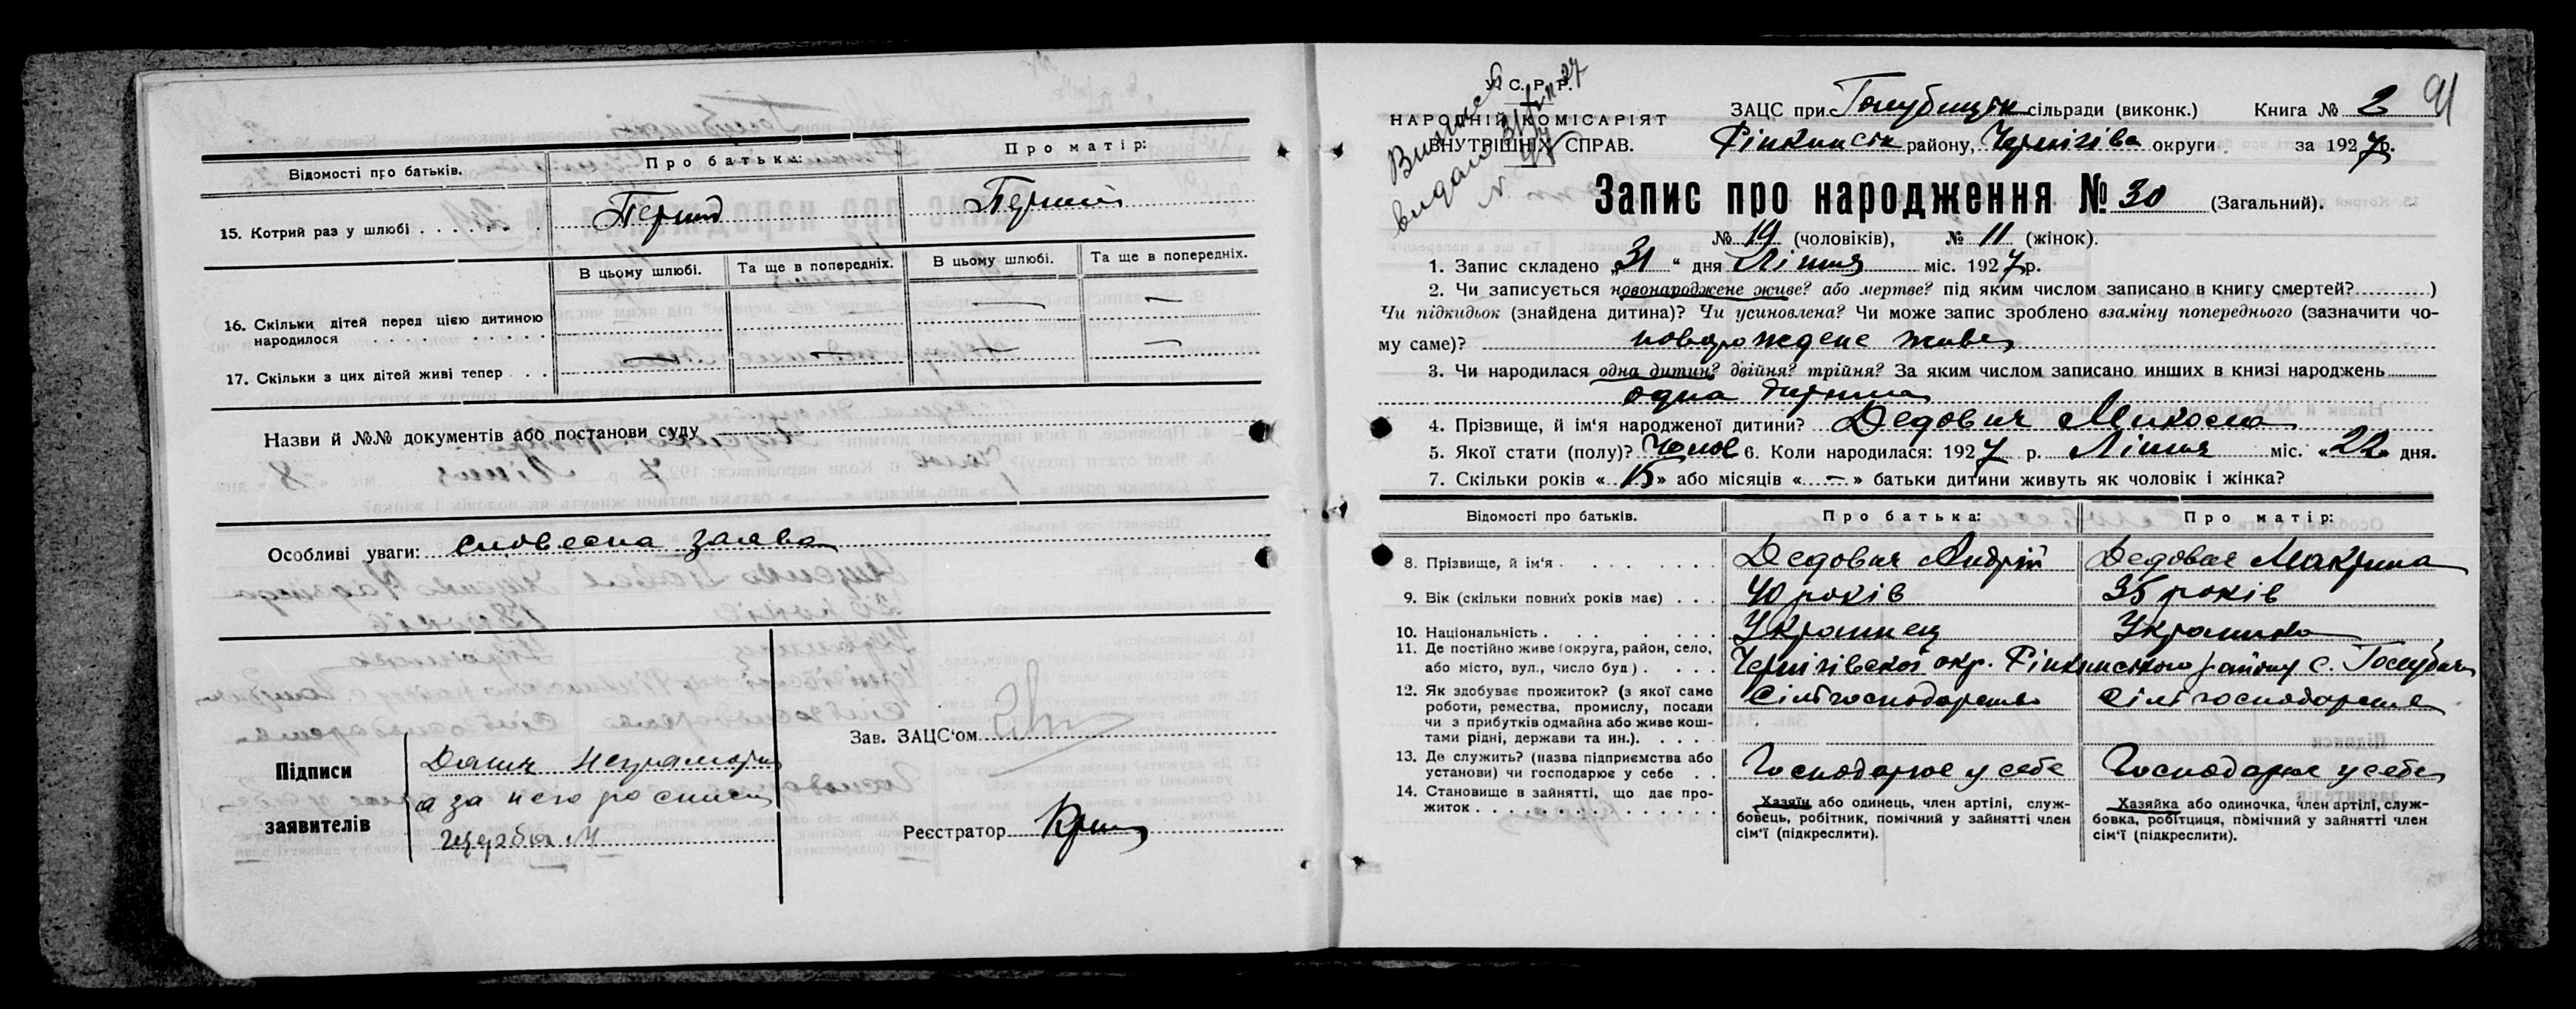 Відомості про батьків.
Про батька:
Про матір:
15. Котрий раз у шлюбі
Перший
Перший
В цьому шлюбі.
Та ще в попередніх.
В цьому шлюбі.
Та ще в попередніх.
16. Скільки дітей перед цією дитиною
народилося
— —
17. Скільки з цих дітей живі тепер
— — — —
Назви й №№ документів або постанови суду
Особливі уваги: словесна заява
Підписи
заявителів
неграмотн
а за него росписи
Щерба М
Зав. ЗАЦС'ом
Реєстратор
У. С. Р. Р.
НАРОДНІЙ КОМІСАРІЯТ
ВНУТРІШНІХ СПРАВ.
ЗАЦС при сільради (виконк.) Книга № 2
91
Ріпкинськ району, Чернігів округи за 1927 р.
Запис про народження № 30 (Загальний).
№ 19 (чоловіків), № 11 (жінок).
1. Запис складено „31“ дня Літня міс. 1927 р.
2. Чи записується новонароджене живе? або мертве? під яким числом записано в книгу смертей? )
Чи підкидьок (знайдена дитина)? Чи усиновлена? Чи може запис зроблено взаміну попереднього (зазначити чо-
му саме)? новорождене живе
3. Чи народилася одна дитин? двійня? трійня? За яким числом записано инших в книзі народжень
одна
4. Прізвище, й ім'я народженої дитини? Дедович Микола
5. Якої стати (полу)? Чолов 6. Коли народилася: 1927 р. Літня міс. «22» дня.
7. Скільки років «15» або місяців «—» батьки дитини живуть як чоловік і жінка?
Відомості про батьків.
Про батька:
Про матір:
8. Прізвище, й ім'я
Дедович Андрій
Дедович Макрина
9. Вік (скільки повних років має)
40 років
35 років
10. Національність
Українец
Українка
11. Де постійно живе (округа, район, село,
або місто, вул., число буд)
Чернігівскої окр. Ріпкинського району с. Голубичі
12. Як здобуває прожиток? (з якої саме
роботи, ремества, промислу, посади
чи з прибутків одмайна або живе кош-
тами рідні, держави та ин.).
13. Де служить? (назва підприємства або
установи) чи господарює у себе
Господарює у себе
Господарює у себе
14. Становище в зайнятті, що дає про-
житок
Хазяїн або одинець, член артілі, служ-
бовець, робітник, помічний у зайнятті член
сім'ї (підкреслити).
Хазяйка або одиночка, член артілі, служ-
бовка, робітциця, помічний у зайнятті член
сім'ї (підкреслити).